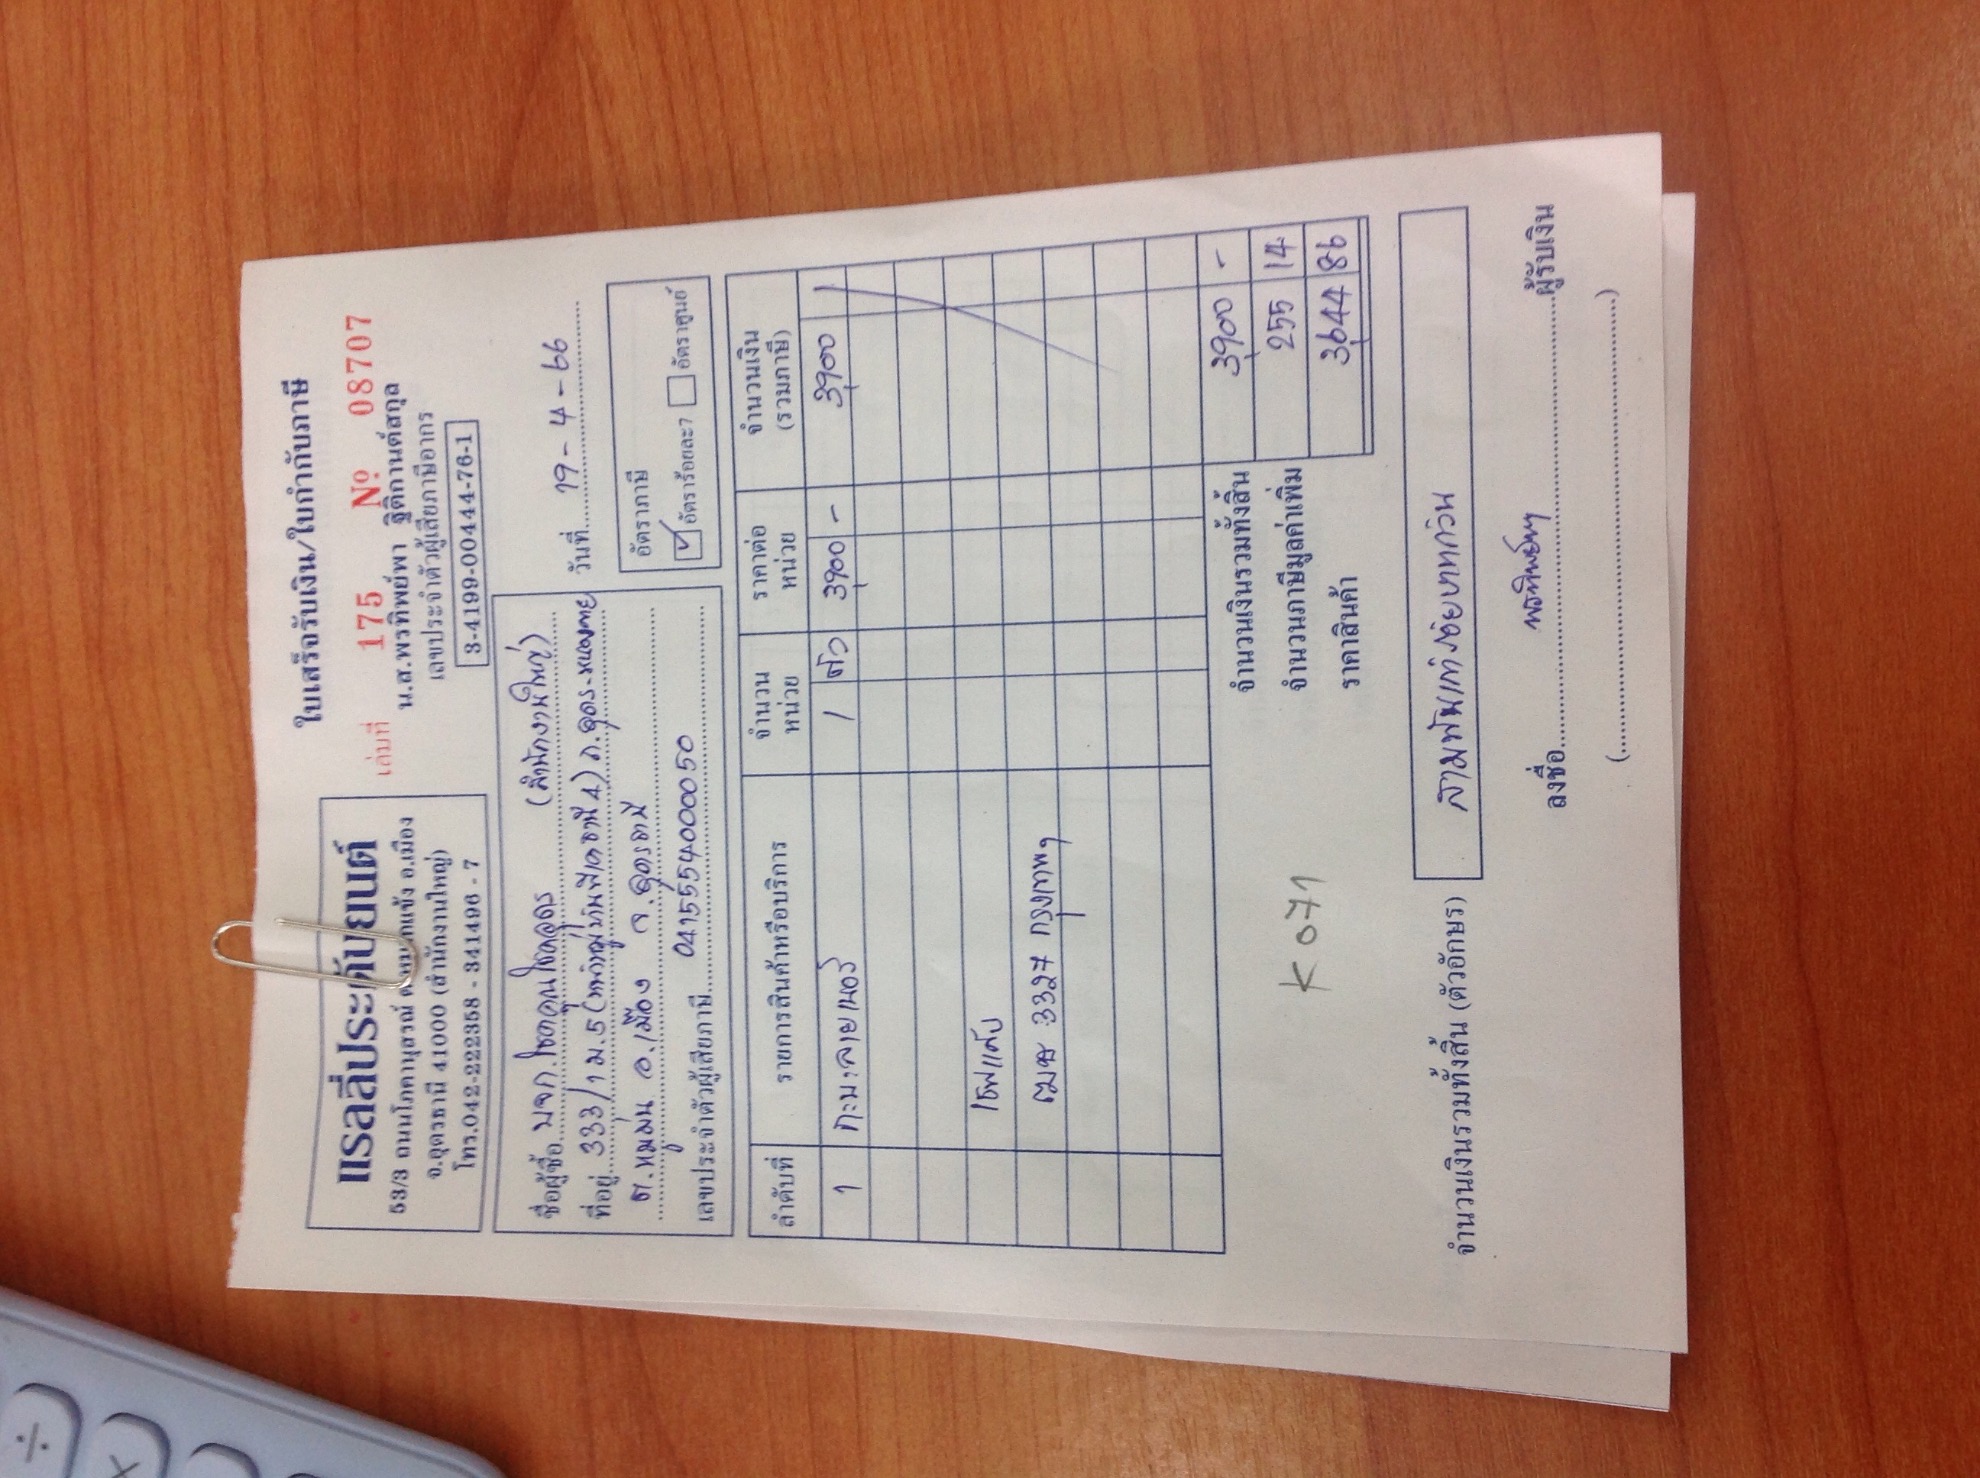 แรลลี่ประดับยนต์
53/3 ถนนโภคานุสรณ์ ต.หมากแข้ง อ.เมือง
จ.อุดรธานี 41000 (สำนักงานใหญ่)
โทร.042-222358 - 341496 - 7
ใบเสร็จรับเงิน/ใบกำกับภาษี
เล่มที่ 175 Nº 08707
น.ส.พรทิพย์พา ฐิติกานต์สกุล
เลขประจำตัวผู้เสียภาษีอากร
3-4199-00444-76-1
วันที่ 19-4-66
ชื่อผู้ซื้อ บจก.โชคอุดมโชคอุดร (สำนักงานใหญ่)
ที่อยู่ 333/1 ม.5 ถ.อุดร-หนองคาย
ต.หมูม่น อ.เมือง จ.อุดรธานี
เลขประจำตัวผู้เสียภาษี 0415554000050
อัตราภาษี
☑ อัตราร้อยละ7 ☐ อัตราศูนย์
ลำดับที่ รายการสินค้าหรือบริการ จำนวนหน่วย ราคาต่อหน่วย จำนวนเงิน (รวมภาษี)
1 กะบะลายเนอร์ 1 ตัว 3900 - 3900
3327 กรุงเทพฯ
จำนวนเงินรวมทั้งสิ้น 3900 -
จำนวนภาษีมูลค่าเพิ่ม 255 14
ราคาสินค้า 3644 86
K 071
จำนวนเงินรวมทั้งสิ้น (ตัวอักษร) สามพันเก้าร้อยบาทถ้วน
ลงชื่อ พรทิพย์พา ผู้รับเงิน
(                )
÷
×